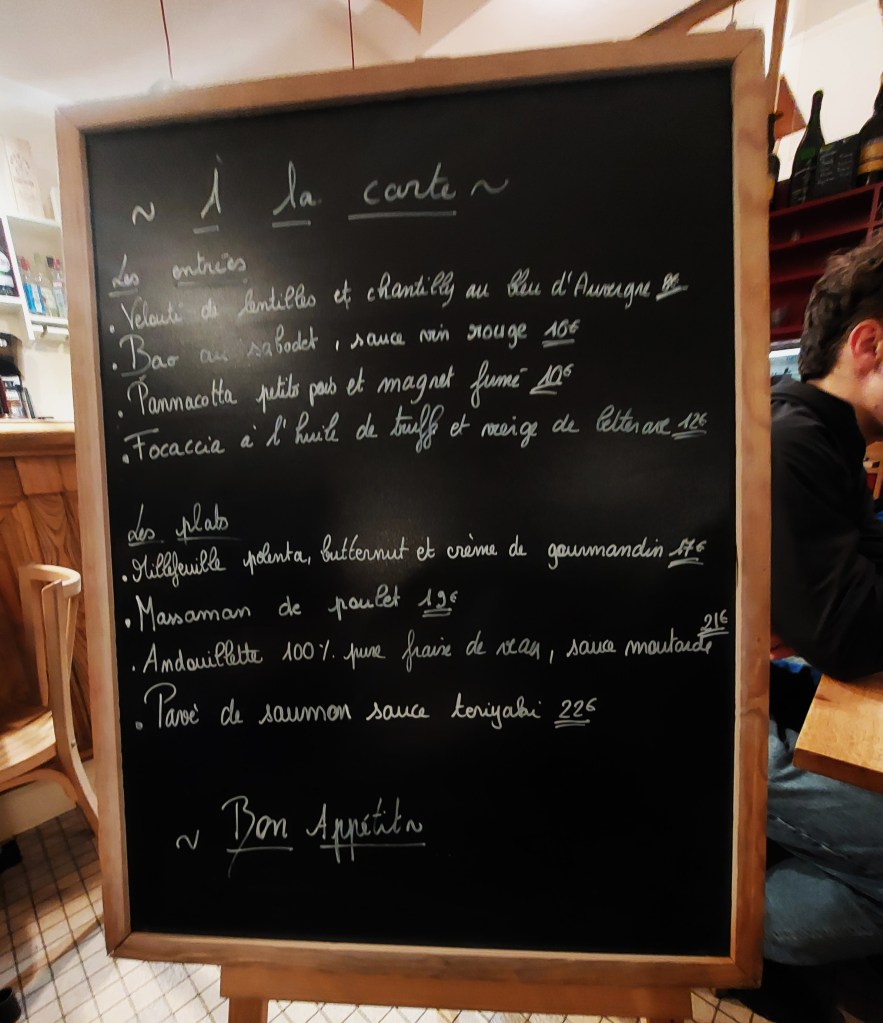 ~ À la carte ~
Les entrées
. Velouté de lentilles et chantilly au bleu d'Auvergne
. Bao au sabodet, sauce vin rouge 10€
. Pannacotta petits pois et magret fumé 10€
. Focaccia à l'huile de truffe et neige de 12€
Les plats
. Millefeuille polenta, butternut et crème de gourmandin 17€
. Massaman de poulet 19€
. Andouillette 100% pure fraise de veau, sauce moutarde 21€
. Pavé de saumon sauce teriyaki 22€
~ Bon Appétit ~